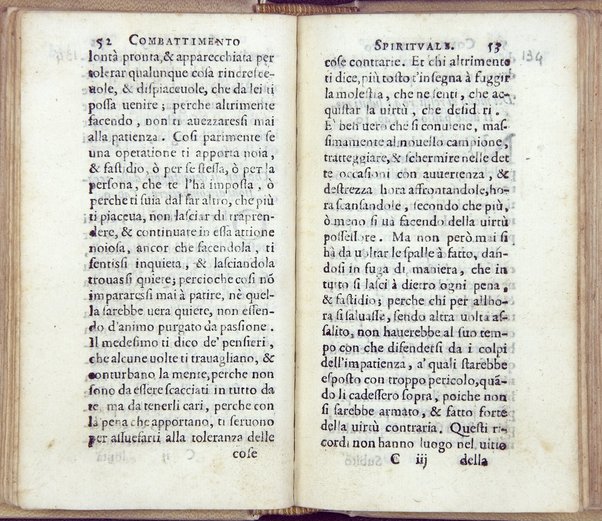 52 COMBATTIMENTO
lontà pronta, & apparecchiata per
tolerar qualunque cosa rincresce-
uole, & dispiaceuole, che da lei ti
possa uenire; perche altrimente
facendo, non ti auezzaressi mai
alla patienza. Cosi parimente se
una operatione ti apporta noia,
& fastidio, ò per se stessa, ò per la
persona, che te l'ha imposta, ò
perche ti suia dal far altro, che più
ti piaceua, non lasciar di trapren-
dere, & continuate in essa attione
noiosa, ancor che facendola, ti
sentissi inquieta, & lasciandola
trouassi quiete; percioche cosi nó
impararessi mai à patire, nè quel-
la sarebbe uera quiete, non essen-
do d'animo purgato da passione.
Il medesimo ti dico de' pensieri,
che alcune uolte ti trauagliano, &
conturbano la mente, perche non
sono da essere scacciati in tutto da
te ma da tenerli cari, perche con
la pena che apportano, ti seruono
per assuefarti alla toleranza delle
cose
SPIRITVALE. 53
134
cose contrarie. Et chi altrimento
ti dice, più tosto t'insegna à fuggir
la molestia, che ne senti, che ac-
quistar la uirtù, che desideri.
E' ben uero che si conuiene, mas-
simamente al nouello campione,
tratteggiare, & schermire nelle det
te occasioni con auuertenza, &
destrezza hora affrontandole, ho-
ra scansandole, secondo che più,
ò meno si uà facendo della uirtù
possessore. Ma non però mai si
hà da uoltar le spalle à fatto, dan-
dosi in fuga di maniera, che in
tutto si lasci à dietro ogni pena,
& fastidio; perche chi per allho-
ra si saluasse, sendo altra uolta as-
salito, non hauerebbe al suo tem-
po con che difendersi da i colpi
dell'impatienza, a' quali starebbe
esposto con troppo pericolo, quá-
do li cadessero sopra, poiche non
si sarebbe armato, & fatto forte
della uirtù contraria. Questi ri-
cordi non hanno luogo nel uitio
C iij della